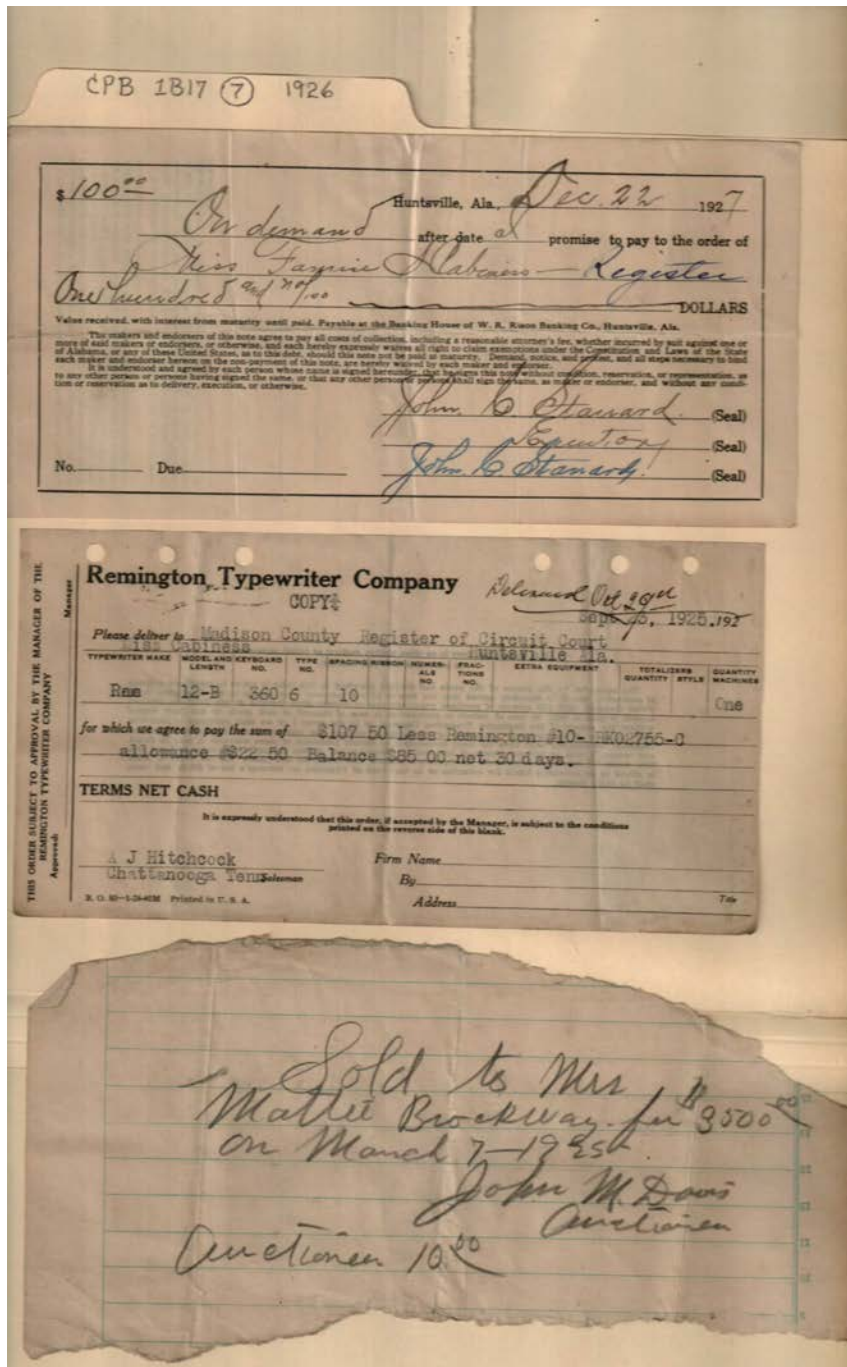 CPB 1B17 7 1926
$ 100.00 Huntsville, Ala., Dec. 22 1927
On demand after date I promise to pay to the order of
Miss Fannie Cabiness — Register
One hundred and no/100 DOLLARS
Value received, with interest from maturity until paid. Payable at the Banking House of W. R. Rison Banking Co., Huntsville, Ala.
The makers and endorsers of this note agree to pay all costs of collection, including a reasonable attorney's fee, whether incurred by suit against one or
more of said makers or endorsers, or otherwise, and each hereby expressly waives all right to claim exemptions under the Constitution and Laws of the State
of Alabama, or any of these United States, as to this debt, should this note not be paid at maturity. Demand, notice, and protest, and all steps necessary to bind
each maker and endorser hereon on the non-payment of this note, are hereby waived by each maker and endorser.
It is understood and agreed by each person whose name is signed hereunder, that he signs this note without condition, reservation, or representation, as
to any other person or persons having signed the same, or that any other person or persons shall sign the same, as maker or endorser, and without any condi-
tion or reservation as to delivery, execution, or otherwise.
John C Stanard (Seal)
Executor (Seal)
No. Due John C Stanard (Seal)
THIS ORDER SUBJECT TO APPROVAL BY THE MANAGER OF THE
REMINGTON TYPEWRITER COMPANY
Approved: Manager
Remington Typewriter Company
COPY
Delivered Oct
Sept 1925. 192
Please deliver to Madison County Register of Circuit Court
Miss Cabiness Huntsville Ala.
TYPEWRITER MAKE MODEL AND LENGTH KEYBOARD NO. TYPE SPACING RIBBON NUMER-ALS NO. FRAC-TIONS NO. EXTRA EQUIPMENT TOTALIZERS QUANTITY STYLE QUANTITY MACHINES
Rem 12-B 360 6 10 One
for which we agree to pay the sum of $107 50 Less Remington #10- RK02755-C
allowance $22 50 Balance $85 00 net 30 days.
TERMS NET CASH
It is expressly understood that this order, if accepted by the Manager, is subject to the conditions
printed on the reverse side of this blank.
A J Hitchcock Firm Name
Chattanooga Tenn Salesman By
Printed in U. S. A. Address Title
Sold to Mrs
Mattie Brockway for $3500.00
on March 7-1925
John M. Davis
Auctioneer
Auctioneer 10.00